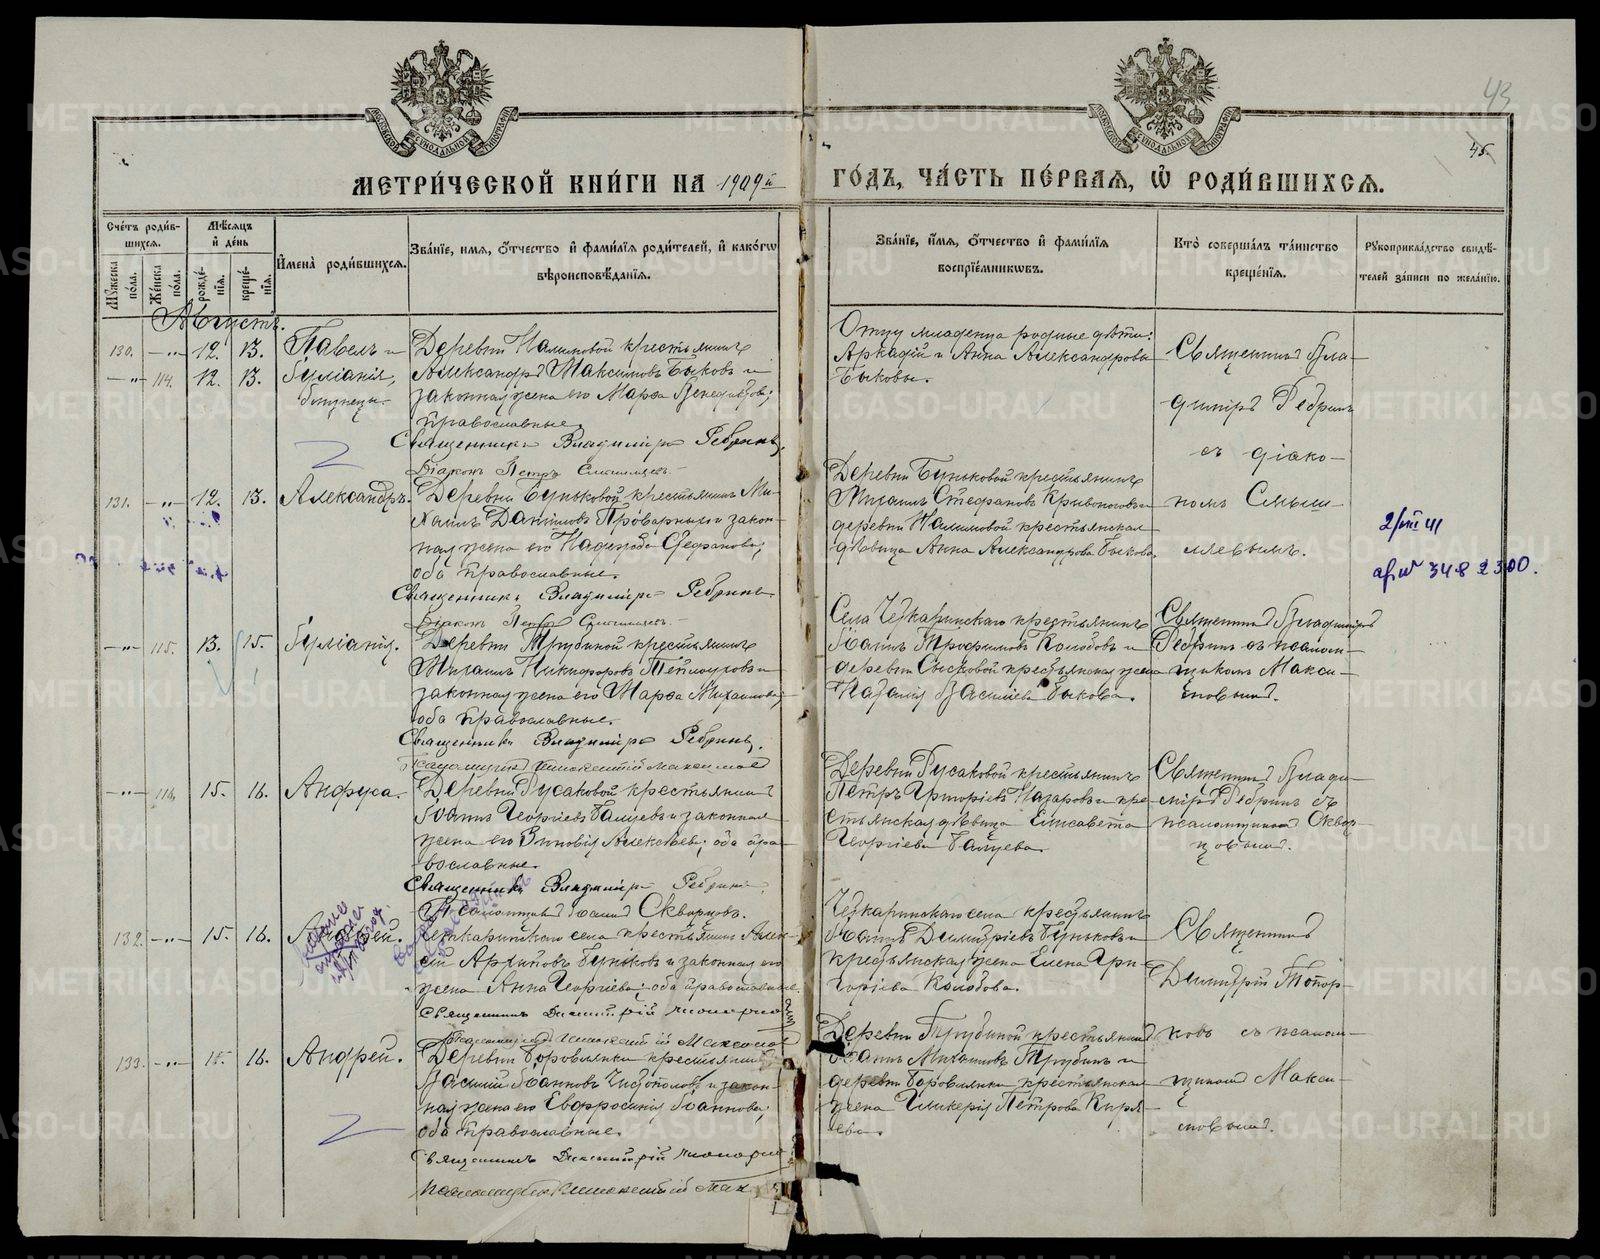 МЕТРИ́ЧЕСКОЙ КНИ́ГИ НА 1909й ГО́ДЪ, ЧА́СТЬ ПЕ́РВАЯ, Ѡ РОДИ́ВШИХСЯ.
43
45
Сче́тъ роди́вшихся.
Му́жеска по́ла.
Же́нска по́ла.
Мѣ́сяцъ и де́нь
рожде́нїя.
креще́нїя.
И҆мена̀ роди́вшихся.
Зва́нїе, имя, ѻ҆́тчество и҆ фами́лїя роди́телей, и҆ како́гѡ вѣроисповѣ́данїя.
Зва́нїе, и҆́мя, ѻ҆́тчество и҆ фами́лїя воспрїе́мникѡвъ.
Кто̀ соверша́лъ та́инство креще́нїя.
Рꙋкоприкла́дство свидѣ́телей за́писи по жела́нїю.
Августъ.
130. — " — 12. 13. Павелъ и
— " — 114. 12. 13. Іуліанія,
близнецы.
Деревни Налимовой крестьянинъ
Александръ Максимовъ Быковъ и
законная жена его Марѳа Венедиктова;
православные.
Священникъ Владимиръ Ребринъ.
Діаконъ Петръ Смышляевъ.
Отцу младенца родные дѣти:
Аркадій и Анна Александровы
Быковы.
Священникъ Вла-
димиръ Ребринъ
съ діако-
номъ Смыш-
ляевымъ.
131. — " — 12. 13. Александръ.
Деревни Буньковой крестьянинъ Ми-
хаилъ Даниловъ и закон-
ная жена его Надежда Стефанова;
оба православные.
Священникъ Владимиръ Ребринъ
Діаконъ Петръ Смышляевъ.
Деревни Буньковой крестьянинъ
Михаилъ Стефановъ Кривоноговъ и
деревни Налимовой крестьянская
дѣвица Анна Александрова Быкова.
2/VIII 41
348 2300.
— " — 115. 13. 15. Іуліанія.
Деревни Трубиной крестьянинъ
Михаилъ Никифоровъ и
законная жена его Марѳа Михаилова;
оба православные.
Священникъ Владимиръ Ребринъ.
Псаломщикъ Иннокентій Максимовъ
Села Четкаринскаго крестьянинъ
Іоаннъ Трофимовъ Колобовъ и
деревни крестьянская жена
Наталія Васильева Быкова.
Священникъ Владимиръ
Ребринъ съ псалом-
щикомъ Макси-
мовымъ.
— " — 116. 15. 16. Анфуса.
Деревни Русаковой крестьянинъ
Іоаннъ Георгіевъ и законная
жена его Зиновія Алексѣева; оба пра-
вославные.
Священникъ Владимиръ Ребринъ.
Псаломщикъ Іоаннъ Скворцовъ.
Деревни Русаковой крестьянинъ
Петръ Григоріевъ Назаровъ и кре-
стьянская дѣвица Елисавета
Георгіева
Священникъ Влади-
миръ Ребринъ съ
псаломщикомъ Сквор-
цовымъ.
132. — " — 15. 16. Андрей.
Четкаринскаго села крестьянинъ Алек-
сѣй Архиповъ Буньковъ и законная его
жена Анна Георгіева; оба православные.
Священникъ Димитрій Топорковъ
Псаломщикъ Иннокентій Максимовъ
Четкаринскаго села крестьянинъ
Іоаннъ Димитріевъ Буньковъ и
крестьянская жена Елена Гри-
горіева Колобова.
Священникъ
Димитрій Топор-
ковъ съ псалом-
щикомъ Макси-
мовымъ.
133. — " — 15. 16. Андрей.
Деревни Боровлянки крестьянинъ
Василій Іоанновъ Чистополовъ и закон-
ная жена его Евфросинія Іоаннова;
оба православные.
Священникъ Димитрій
Псаломщикъ Иннокентій Мак
Деревни Трубиной крестьянинъ
Іоаннъ Михаиловъ Трубинъ и
деревни Боровлянки крестьянская
жена Гликерія Петрова Киря-
ева.